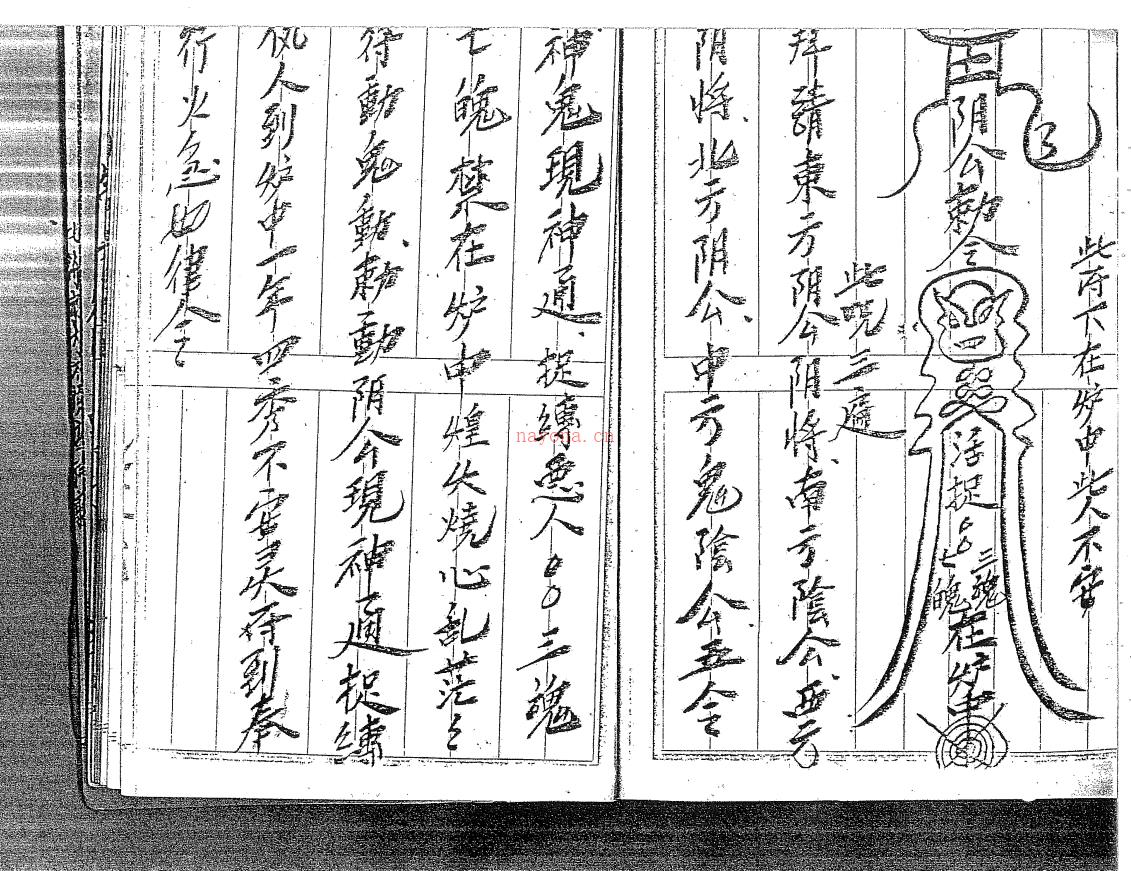 此符下在炉中此人不安
阴公勅令
活捉
三魂
七魄
在炉中
此咒三遍
拜請東方阴公阴将、南方陰公、西方
阴将、北方阴公、中方鬼陰公五
神鬼現神通、捉縛悪人〇〇三魂
七魄禁在炉中煌火燒心乱茫〻
符動鬼動、勅動阴公現神通捉縛
仇人到炉中一年四季不安灵符到奉
行火急如律令〻
nayona.cn